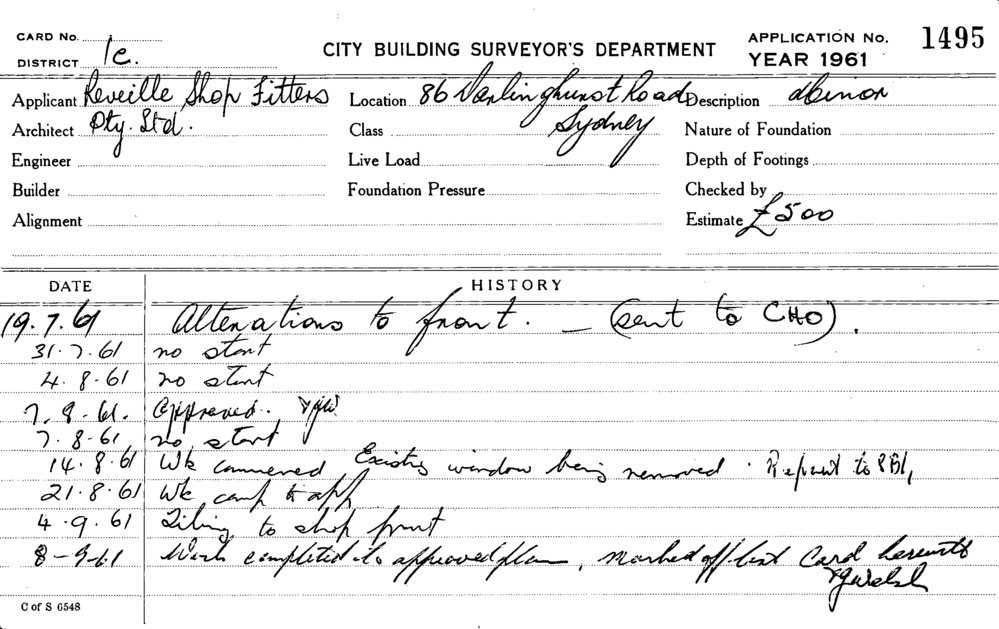 CARD No.
DISTRICT 1c.
CITY BUILDING SURVEYOR'S DEPARTMENT
APPLICATION No. 1495
YEAR 1961
Applicant Reveille Shop Fitters Location 86 Darlinghurst Road Description Minor
Architect Pty. Ltd. Class Sydney Nature of Foundation
Engineer Live Load Depth of Footings
Builder Foundation Pressure Checked by
Alignment Estimate £500
DATE HISTORY
19.7.61 Alterations to front. — (sent to CHO).
31.7.61 no start
4.8.61 no start
7.8.61. Approved.
7.8.61 no start
14.8.61 Wk commenced Existing window being removed. Report to
21.8.61 Wk comp to app
4.9.61 Tiling to shop front
8-9-61 Work completed to approved plan, marked off list Card herewith
C of S 6548